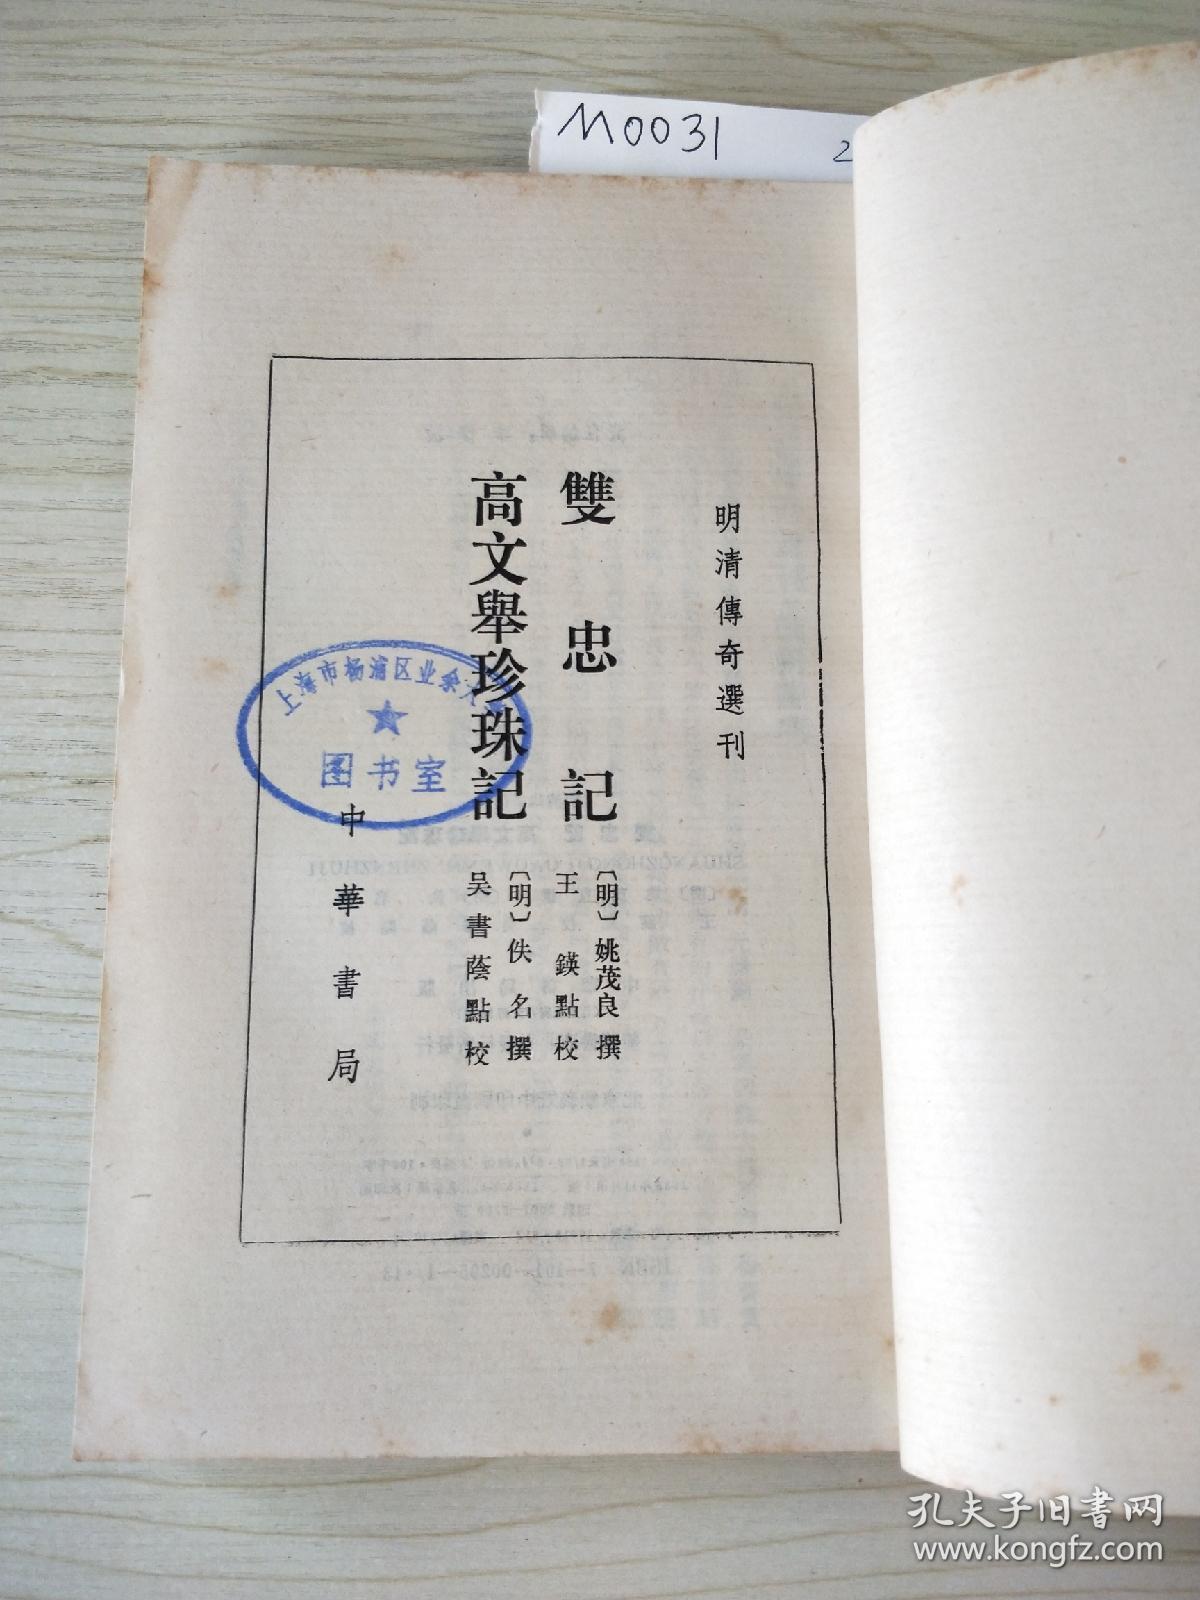 M0031
2
明清傳奇選刊
雙忠記
〔明〕姚茂良撰
王鍈點校
高文舉珍珠記
〔明〕佚名撰
吴書蔭點校
中華書局
上海市杨浦区业余大
图书室
孔夫子旧书网
www.kongfz.com